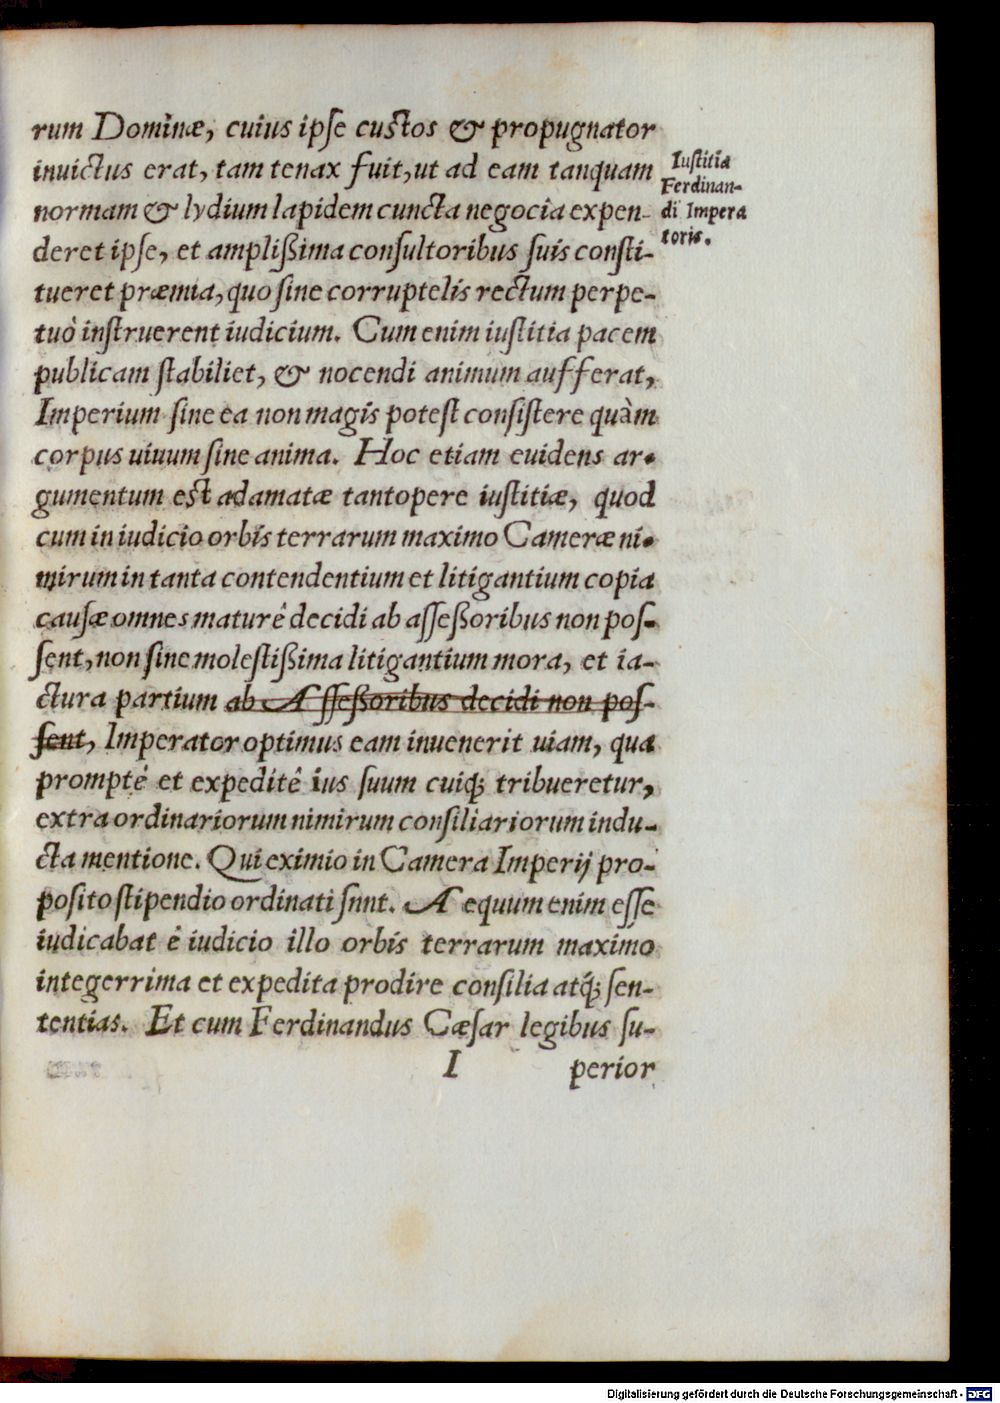 rum Dominæ, cuius ipſe cuſtos & propugnator
inuictus erat, tam tenax fuit, ut ad eam tanquam
normam & lydium lapidem cuncta negocia expen-
deret ipſe, et ampliſsima conſultoribus ſuis conſti-
tueret præmia, quo ſine corruptelis rectum perpe-
tuò inſtruerent iudicium. Cum enim iuſtitia pacem
publicam ſtabiliet, & nocendi animum aufferat,
Imperium ſine ea non magis poteſt conſiſtere quàm
corpus uiuum ſine anima. Hoc etiam euidens ar-
gumentum eſt adamatæ tantopere iuſtitiæ, quod
cum in iudicio orbis terrarum maximo Cameræ ni-
mirum in tanta contendentium et litigantium copia
cauſæ omnes maturè decidi ab aſſeßoribus non poſ-
ſent, non ſine moleſtißima litigantium mora, et ia-
ctura partium ab Aſſeßoribus decidi non poſ-
ſent, Imperator optimus eam inuenerit uiam, qua
promptè et expeditè ius ſuum cuiq; tribueretur,
extraordinariorum nimirum conſiliariorum indu-
cta mentione. Qui eximio in Camera Imperij pro-
poſito ſtipendio ordinati ſnnt. Aequum enim eſſe
iudicabat è iudicio illo orbis terrarum maximo
integerrima et expedita prodire conſilia atq; ſen-
tentias. Et cum Ferdinandus Cæſar legibus ſu-
I perior
Iuſtitia
Ferdinan-
di Impera
toris.
Digitalisierung gefördert durch die Deutsche Forschungsgemeinschaft - DFG